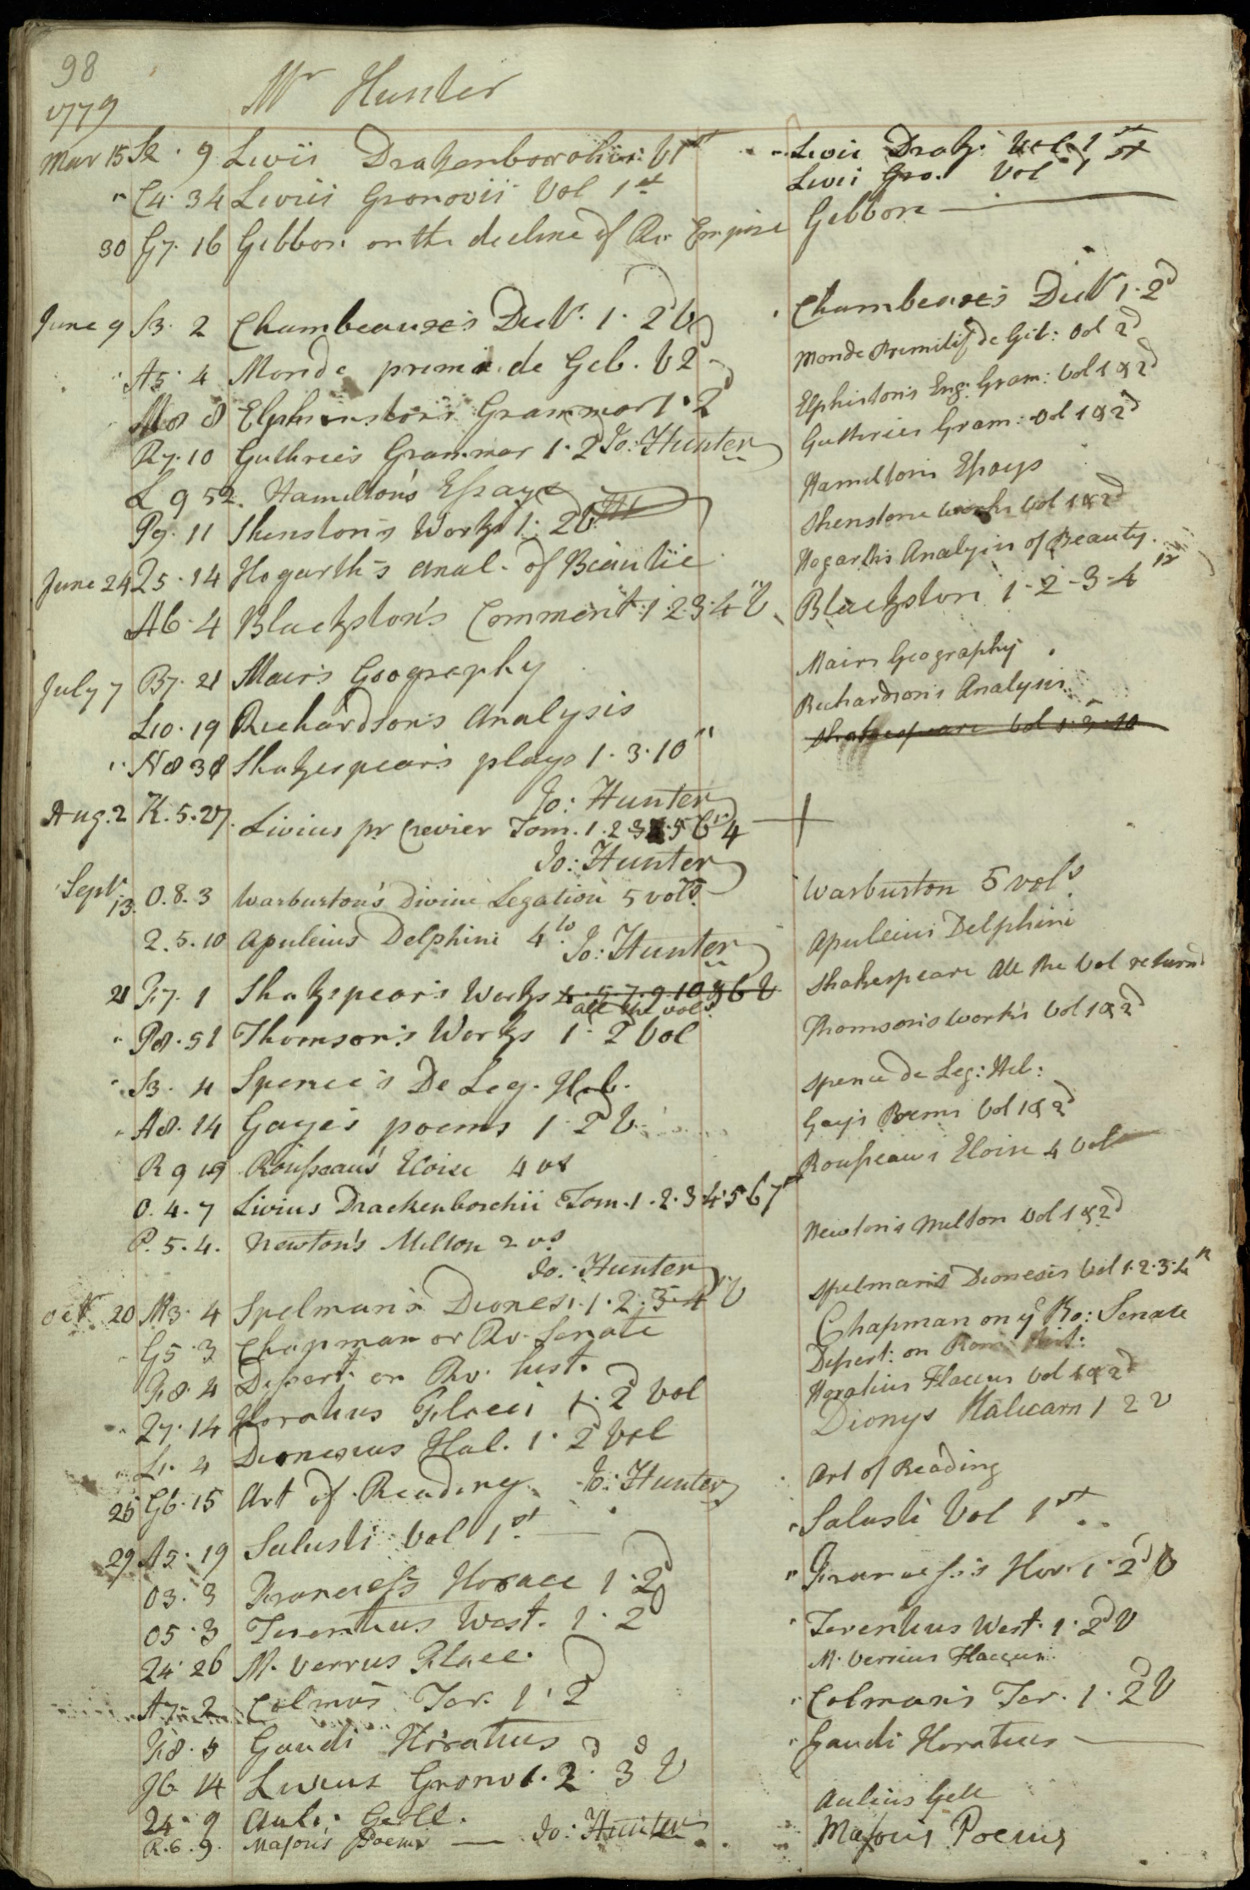 98
1779 Mr Hunter
Mar 15 S2 . 9 Livii Drakenborohii: V 1st Livii Drak. Vol. 1st
" C4 . 34 Livii Gronovii Vol 1st Livii Gro. Vol 1st
30 G7 . 16 Gibbon on the decline of Ro Empire Gibbon
June 9 S3 . 2 Chambeaux's Dict. 1 . 2d V Chambeaux's Dict 1 . 2d
A5 . 4 Monde prim. de Geb. V 2d Monde Primitif de Geb: Vol 2d
M8 8 Elphinston's Grammar 1 . 2d Elphiston's Eng. Gram: Vol 1 & 2d
R7 . 10 Guthrie's Grammar 1 . 2d Jo: Hunter Guthries Gram: Vol 1 & 2d
L 9 52 . Hamilton's Essays Hamiltons Essays
P9 . 11 Shenston's Works 1 . 2 V Shenstone works Vol 1 & 2d
June 24 Q5 . 14 Hogarth's anal. of Beautie Hogarths Analysis of Beauty.
A6 . 4 Blackston's Comment. 1 2 . 3 . 4 V Blackston 1 - 2 - 3 - 4
July 7 B7 . 21 Mair's Geography Mairs Geography
L10 . 19 Richardson's Analysis Richardson's Analysis
" N8 38 Shakespear's plays 1 . 3 . 10" Shakespeare Vol 1 . 3 . 10
Jo: Hunter
Aug. 2 K . 5 . 27. Livius pr Crevier Tom. 1 . 2 3 5 6 4
Jo: Hunter
Septr 13. O . 8 . 3 Warburton's Divine Legation 5 vols. Warburton 5 vols
2 . 5 . 10 Apuleius Delphini 4to. Jo: Hunter Apuleius Delphini
21 F7 . 1 Shakspear's Works all the vols Shakespeare All the Vol returnd
" P8 . 51 Thomson's Works 1 . 2 Vol Thomson's works Vol 1 & 2d
" S3 . 4 Spence's De Leg. Heb. Spence de Leg: Heb:
" A8 . 14 Gaye's poems 1 . 2d V. Gay's Poems Vol 1 & 2d
R 9 19 Rousseau's Eloise 4 vs Rousseau's Eloise 4 Vol
O . 4 . 7 Livius Drackenborchii Tom. 1 . 2 . 3 4 . 5 6 7
P . 5 . 4 . Newton's Milton 2 vs Newton's Milton Vol 1 & 2d
Jo: Hunter
Octr 20 M3 . 4 Spelman's Diones. 1 . 2 . 3 . 4 V Spelman's Dionesis Vol 1 . 2 . 3 . 4
G5 . 3 Chapman on Ro. Senate Chapman on ye Ro: Senate
F8 . 4 Dissert. on Ro. hist. Dissert: on Rom: Hist:
27 . 14 Horatius Flacci 1 . 2d vol Horatius Flaccus Vol 1 & 2d
L1 . 4 Dionesius Hal. 1 . 2d Vol Dionys Halicarn 1 2 v
26 G6 . 15 Art of Reading Jo: Hunter Art of Reading
Salusti Vol 1st. Salusti Vol 1st
29 A5 . 19
O3 . 3 Francess's Horace 1 . 2d " Francess's Hor. 1 . 2d V
O5 . 3 Terentius West. 1 . 2d Terentius West. 1 . 2d V
24 . 26 M. Verrus Flacc. M. Verrius Flaccus.
A7 . 2 Colman's Ter. 1 . 2d Colman's Ter. 1 . 2d V
F8 . 5 Gaudi Horatius Gaudi Horatius
J6 14 Livius Grono 1 . 2d . 3d V
24 . 9 Auli Gell. Aulius Gell
R . 6 . 9 . Majoris Poems — Jo: Hunter Majoris Poems